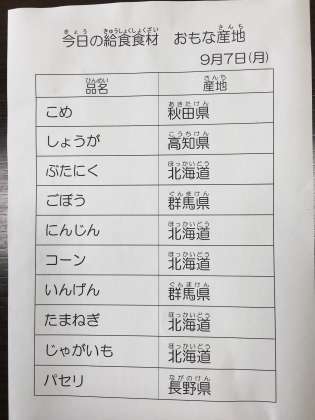 今日の給食食材　おもな産地
9月7日(月)
品名　産地
こめ　秋田県
しょうが　高知県
ぶたにく　北海道
ごぼう　群馬県
にんじん　北海道
コーン　北海道
いんげん　群馬県
たまねぎ　北海道
じゃがいも　北海道
パセリ　長野県